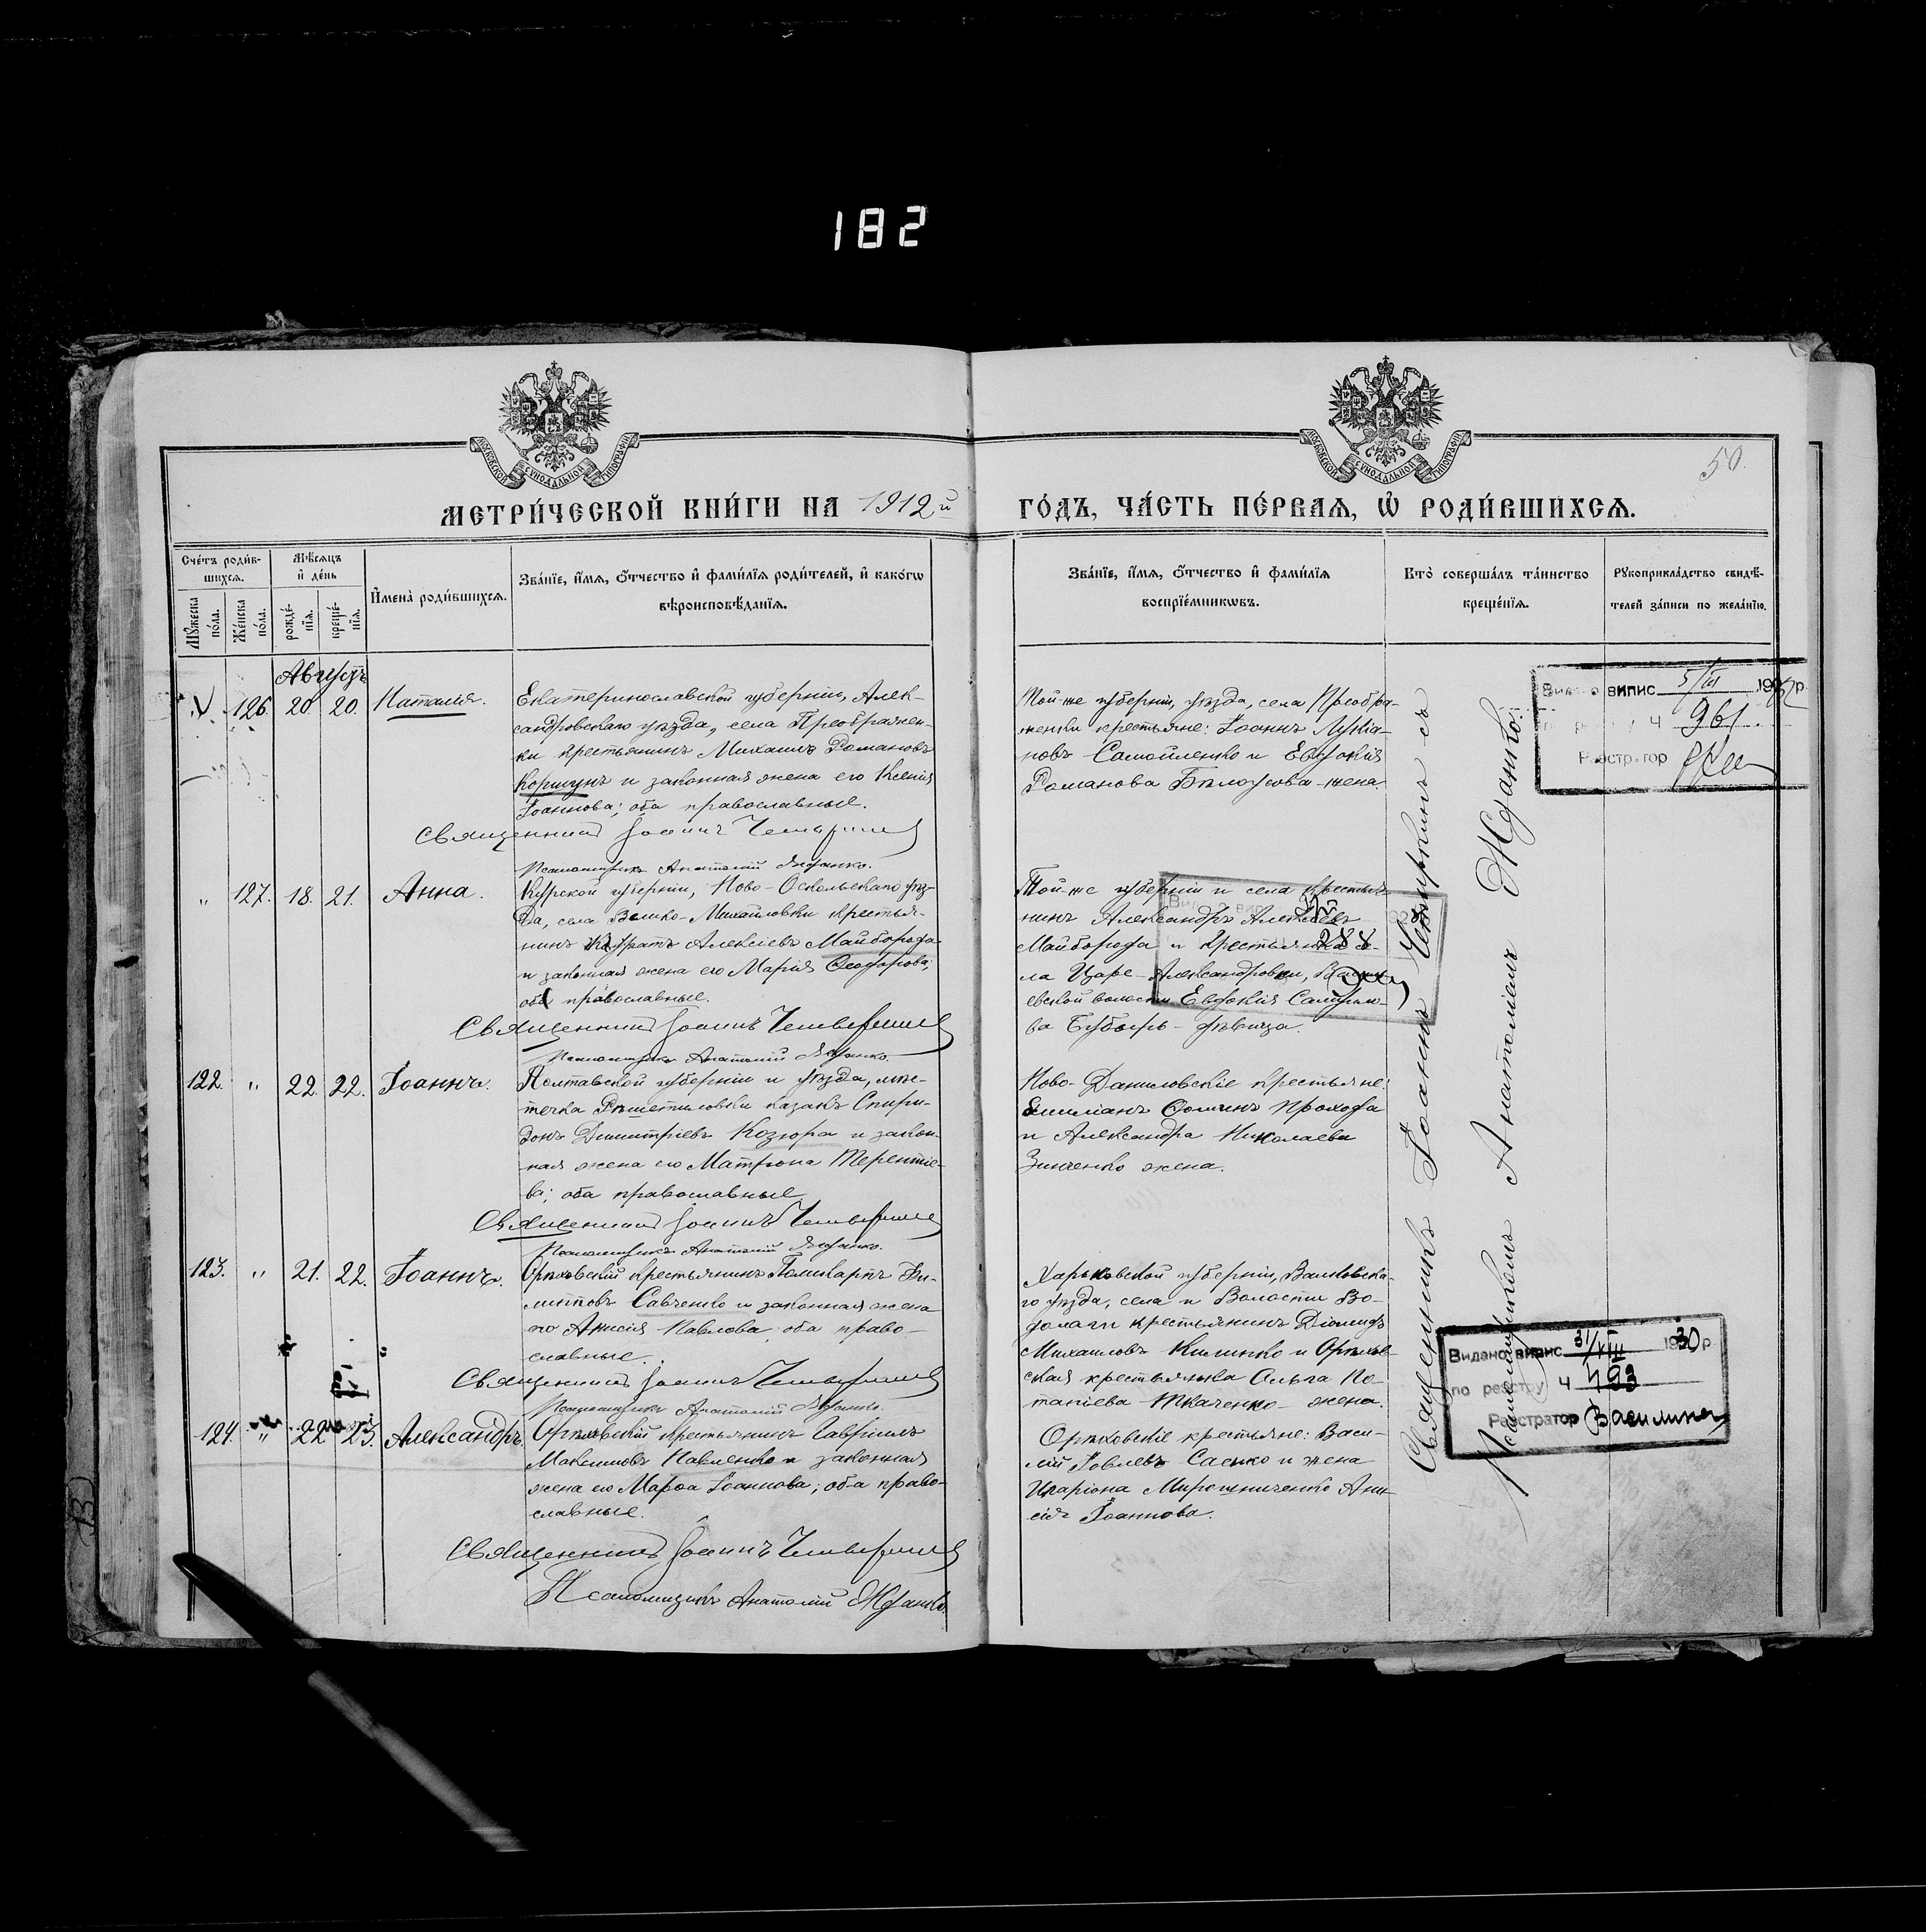 182
МОСКОВСКОЙ СѴНОДАЛЬНОЙ ТИПОГРАФІИ
МОСКОВСКОЙ СѴНОДАЛЬНОЙ ТИПОГРАФІИ
50.
МЕТРИ́ЧЕСКОЙ КНИ́ГИ НА 1912й
ГО́ДЪ, ЧА́СТЬ ПЕ́РВАЯ, Ѡ РОДИ́ВШИХСЯ.
Сче́тъ роди́в-
шихся.
Мꙋ́жеска по́ла.
Же́нска по́ла.
Мѣ́сяцъ
и҆ де́нь
рожде́-
нїя.
креще́-
нїя.
И҆мена̀ роди́вшихся.
Зва́нїе, и҆́мя, ѻ҆́тчество и҆ фами́лїя роди́телей, и҆ како́гѡ
вѣроисповѣ́данїя.
Зва́нїе, и҆́мя, ѻ҆́тчество и҆ фами́лїя
воспрїе́мникѡвъ.
Кто̀ соверша́лъ та́инство
креще́нїя.
Рꙋкоприкла́дство свидѣ́-
телей за́писи по жела́нїю.
Августъ
126. 20. 20. Наталія.
Екатеринославской губерніи, Алек-
сандровскаго уѣзда, села Преображен-
ки крестьянинъ Михаилъ Романовъ
Коршунъ и законная жена его Ксенія
Іоаннова; оба православные.
Священникъ Іоаннъ
Псаломщикъ Анатолій Жданко.
Той-же губерніи, уѣзда, села Преобра-
женки крестьяне: Іоаннъ Лукіа-
новъ Самойленко и Евдокія
Романова Бѣлоусова - жена.
Видано випис 5/III
ч 961
Реєстратор
" 127. 18. 21. Анна.
Курской губерніи, Ново-Оскольскаго уѣз-
да, села Велико-Михайловки крестья-
нинъ Кодратъ Алексіевъ Майборода
и законная жена его Марія Ѳеодорова;
оба православные.
Священникъ Іоаннъ
Псаломщикъ Анатолій Жданко.
Той-же губерніи и села крестья-
нинъ Александръ Алексіевъ
Майборода и крестьянка се-
ла Царе-Александровки,
евской волости Евдокія
ва Бубырь - дѣвица.
288
122. " 22. 22. Іоаннъ.
Полтавской губерніи и уѣзда, мѣс-
течка Рѣшетиловки казакъ Спири-
донъ Димитріевъ Козюра и закон-
ная жена его Матрона Терентіе-
ва; оба православные.
Священникъ Іоаннъ
Псаломщикъ Анатолій Жданко.
Ново-Даниловскіе крестьяне:
Емиліанъ Ѳоминъ Прохода
и Александра Николаева
Зинченко жена.
123. " 21. 22. Іоаннъ.
Орѣховскій крестьянинъ Поликарпъ Фи-
липповъ Савченко и законная жена
его Анисія Павлова, оба право-
славные.
Священникъ Іоаннъ
Псаломщикъ Анатолій Жданко.
Харьковской губерніи, Валковска-
го уѣзда, села и Волости Во-
долаги крестьянинъ Діомидъ
Михаиловъ Килинко и Орѣхов-
ская крестьянка Ольга По-
тапіева Ткаченко - жена.
Видано випис 31/VIII 1930 р.
по реєстру ч 193
Реєстратор
124. " 22 23. Александръ.
Орѣховскій крестьянинъ Гавріилъ
Максимовъ Павленко и законная
жена его Марѳа Іоаннова; оба право-
славные.
Священникъ Іоаннъ
Псаломщикъ Анатолій Жданко.
Орѣховскіе крестьяне: Васи-
лій Іовлевъ Саенко и жена
Иларіона Мирошниченко Ани-
сія Іоаннова.
Священникъ Іоаннъ съ
Псаломщикомъ Анатоліемъ Жданко.